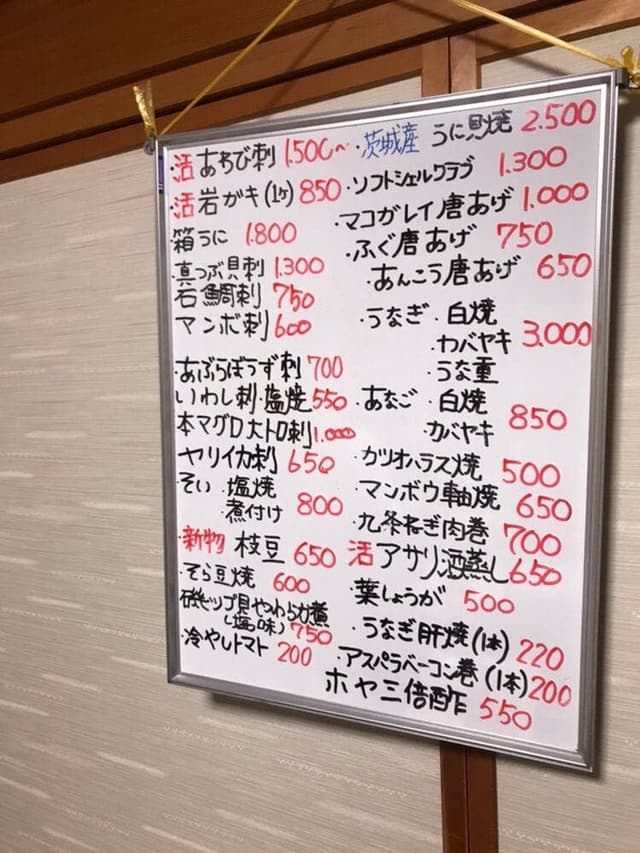 ・活あわび刺 1.500〜
・活岩がキ(1ケ) 850
・箱うに 1.800
・真つぶ貝刺 1.300
・石鯛刺 750
・マンボ刺 600
・あぶらぼうず刺 700
・いわし刺・塩焼 550
・本マグロ大トロ刺 1.000
・ヤリイカ刺 650
・そい 塩焼
・煮付け 800
・新物 枝豆 650
・そら豆焼 600
磯ツブ貝やわらか煮
(塩味) 750
・冷やしトマト 200
・茨城産 うに貝焼 2.500
・ソフトシェルクラブ 1.300
・マコガレイ唐あげ 1.000
・ふぐ唐あげ 750
・あんこう唐あげ 650
・うなぎ ・白焼
・カバヤキ 3.000
・うな重
・あなご ・白焼
カバヤキ 850
・カツオハラス焼 500
・マンボウ軸焼 650
・九条ねぎ肉巻 700
活アサリ酒蒸し 650
・葉しょうが 500
・うなぎ肝焼(1本) 220
・アスパラベーコン巻(1本) 200
ホヤ三倍酢 550